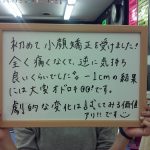 初めて小顔矯正を受けました!
全く痛くなくて、逆に気持ち
良いくらいでした。-1cmの結果
には大変オドロキです。
劇的な変化は試してみる価値
アリだです